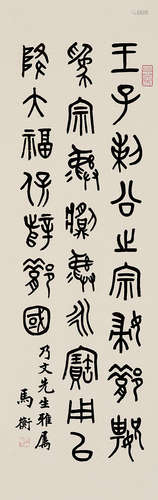 王子剌公之宗婦
為宗彝彝永寶用以
降大福保辥國
乃文先生雅屬
馬衡